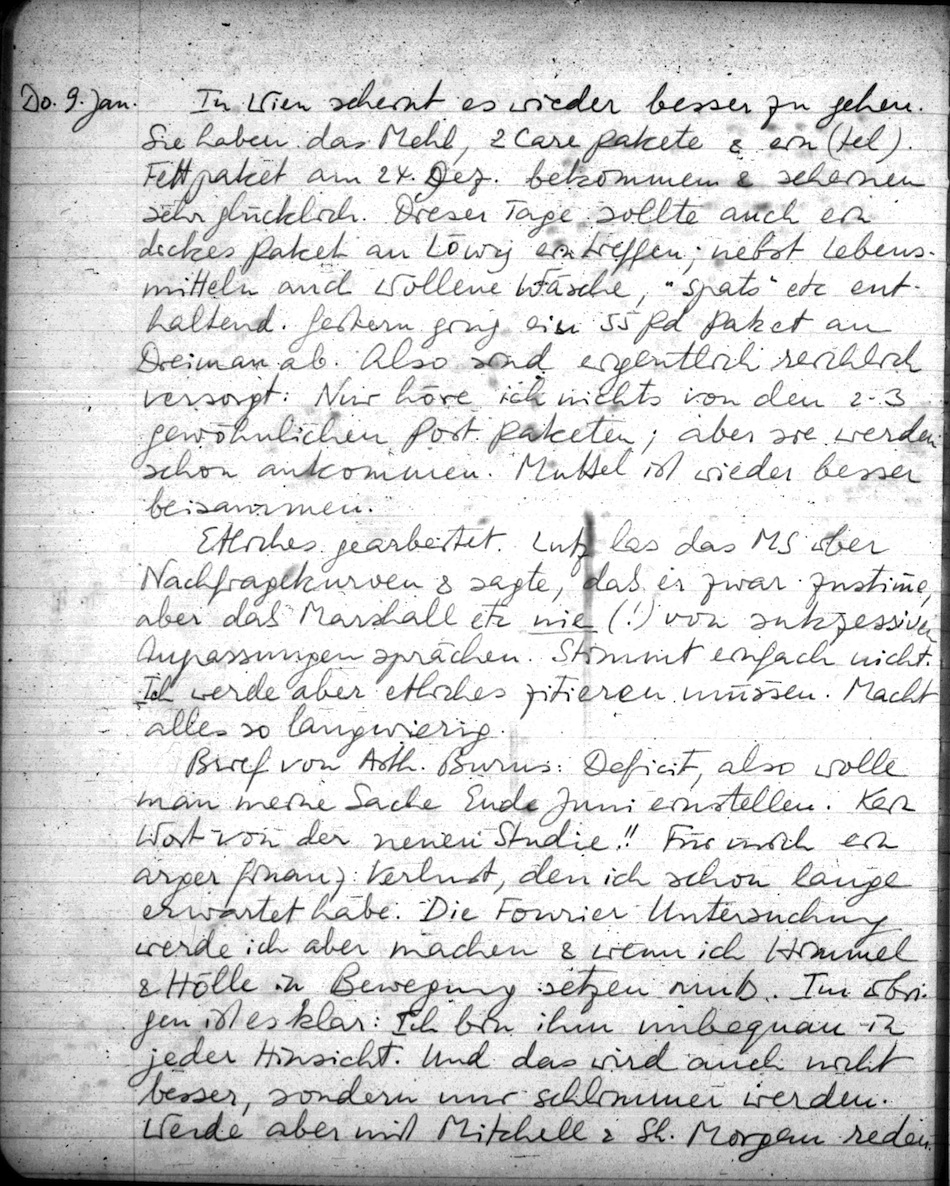 Do. 9. Jan. In Wien scheint es wieder besser zu gehen.
Sie haben das Mehl, 2 Care pakete & ein (tel).
Fettpaket am 24. Dez. bekommen & scheinen
sehr glücklich. Dieser Tage sollte auch ein
dickes Paket an Löwy eintreffen; nebst Lebens-
mitteln auch wollene Wäsche, "spats" etc ent-
haltend. Gestern ging ein 55 Pd Paket an
Dreiman ab. Also sind eigentlich reichlich
versorgt. Nur höre ich nichts von den 2-3
gewöhnlichen Post paketen; aber sie werden
schon ankommen. Muttel ist wieder besser
beisammen.
Etliches gearbeitet. Lutz las das MS über
Nachfragekurven & sagte, daß er zwar zustime,
aber daß Marshall etc nie (!) von sukzessiven
Anpassungen sprächen. Stimmt einfach nicht.
Ich werde aber etliches zitieren müssen. Macht
alles so langwierig.
Brief von Arth. Burns: Deficit, also wolle
man meine Sache Ende Juni einstellen. Kein
Wort von der neuen Studie!! Für mich ein
arger finanz. Verlust, den ich schon lange
erwartet habe. Die Fourier Untersuchung
werde ich aber machen & wenn ich Himmel
& Hölle in Bewegung setzen muß. Im übri-
gen ist es klar: Ich bin ihm unbequem in
jeder Hinsicht. Und das wird auch nicht
besser, sondern nur schlimmer werden.
Werde aber mit Mitchell & Sh. Morgan reden